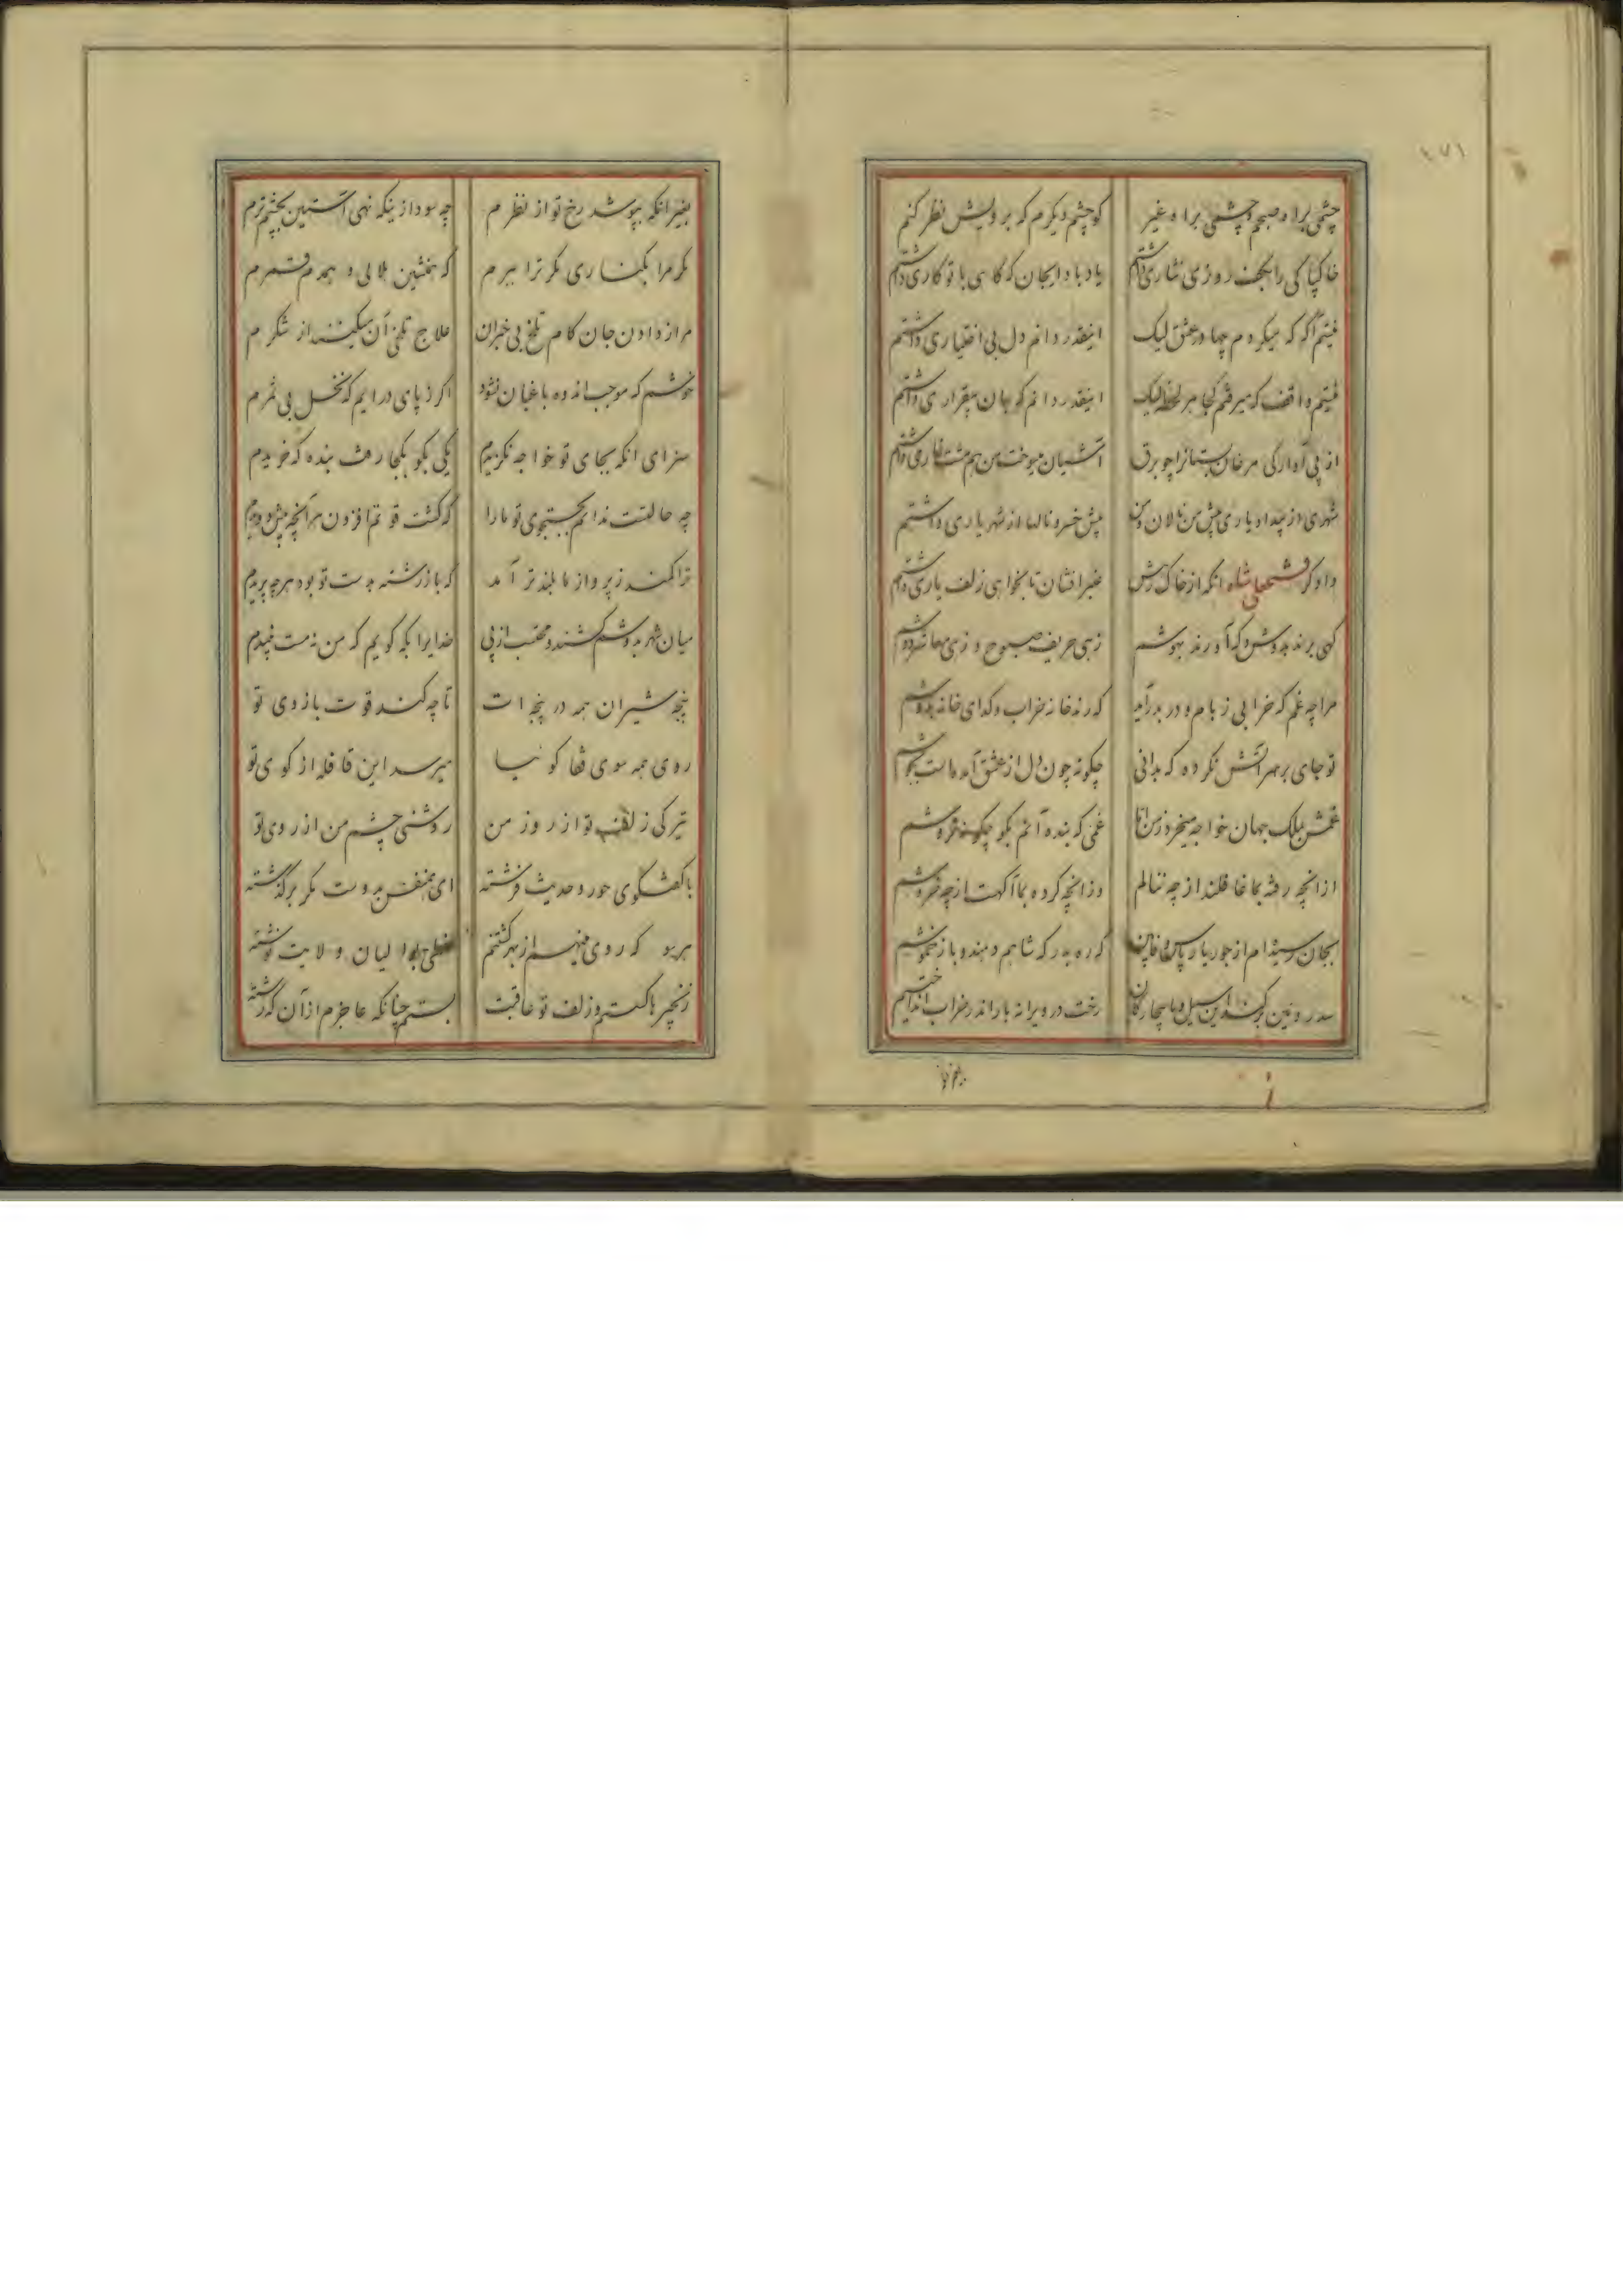 ۲۷۱
چشمی براه صبحم و چشمی براه غیر کو چشم دیگرم که برویش نظر کنم
خاکپاکی را بکف روزی نثاری داشتم یاد باد ایجان که کاهی با تو کاری داشتم
نیستم آگه که میکردم چها در عشق لیک اینقدر دانم دل بی اختیاری داشتم
نیستم واقف که میرفتم کجا هر لحظه لیک اینقدر دانم که جان بیقراری داشتم
از پی آوارکی مرغان بستانرا چو برق آشیان میسوخت من هم مشت خاری داشتم
شهری از بیداد یاری پیش من نالان و من پیش خسرو نالها از شهریاری داشتم
دادکر فتحعلی شاه انکه از خاک رهش عنبر افشان تا بخواهی زلف یاری داشتم
کهی برند بدوش و که آورند بهوشم زهی حریف صبوح و زهی معاشر دوشم
مرا چه غم که خرابی ز بام و در بدر آید که رند خانه خراب و کدای خانه بدوشم
تو جای بر سر آتش نکرده که بدانی چکونه چون دل از عشق آمده است بجوشم
غمش بملک جهان خواجه میخرد ز من اما غمی که بنده آنم بکو چکونه فروشم
از انچه رفته بما غافلند از چه ننالم وز انچه کرده بما آکهست از چه خروشم
بجان رسیده ام از جور یار که ره بدر که شاهم دهند و باز خموشم
سد روئین برکند این سیل و ما بیچارکان رخت در ویرانه یا راندر خراب انداختیم
بغیر انکه بپوشد رخ تو از نظرم چه سود ازینکه نهی آستین بچشم ترم
مکر مرا بکناری مکر ترا ببرم که همنشین هلالی و همدم قمرم
مرا ز دادن جان کام تلخ بی خبران علاج تلخی آن میکنند از شکرم
خوشم که موجب اندوه باغبان نشود اکر ز پای درایم که نخل بی ثمرم
سزای انکه بجای تو خواجه نکزیدم یکی بکو بکجا رفت بنده که خریدم
چه حالتست ندانم بجستجوی تو ما را که کشت قوتم افزون هر آنچه بیش دویدم
ترا کمند ز پرواز ما بلندتر آمد که باز رشته بدست تو بود هر چه پریدم
میان شهر بدوشم کشند و محتسب از پی خدایرا بکه کویم که من نه مست نبیدم
پنجه شیران همه در پنجه ات تا چه کند قوت بازوی تو
روی همه سوی قفا کوئیا میرسد این قافله از کوی تو
تیرکی زلف تو از روز من روشنی چشم من از روی تو
با کفتکوی حور و حدیث فرشته ای همنفس بدوست مکر برکذشته
هر سو که روی مینهم از بهر کشتنم ولایت نوشته
زنجیرها کسستم و زلف تو عاقبت بستم چنانکه عاجزم از آن که رشته